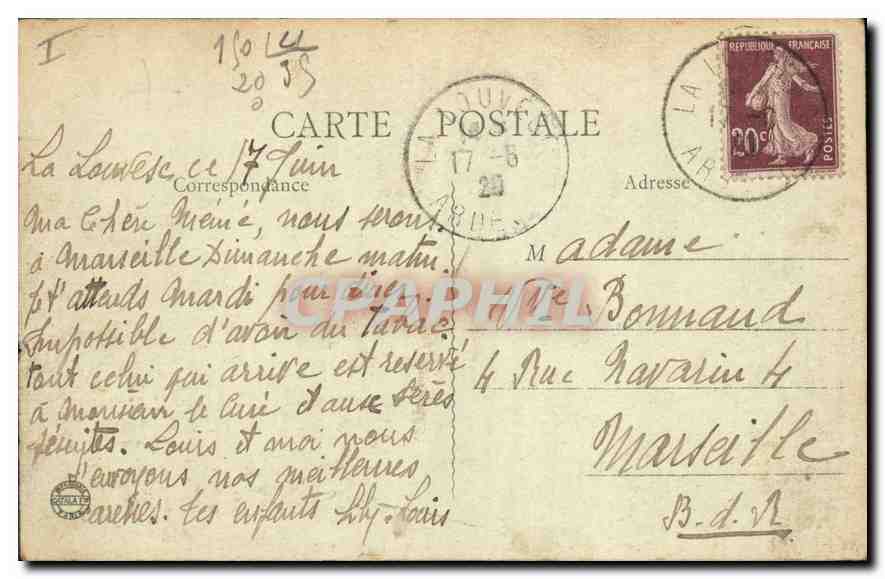 I
150 | 4
20 35
0
CARTE POSTALE
LA LOUVESC
17 -6
ARDECHE
REPUBLIQUE FRANÇAISE
20c
POSTES
LA
AR
La Louvesc ce 17 Juin
Correspondance
Adresse
Ma Chère Mémé, nous serons
à Marseille Dimanche matin
je t'attends Mardi pour
Impossible d'avoir du Tavac
tout celui qui arrive est reservé
à Monsieur le Curé et aux Pères
jésuites. Louis et moi nous
t'envoyons nos meilleures
caresses. tes enfants Louis
CPAPHIL
Madame
Vve Bonnaud
4 Rue Navarin 4
Marseille
B-d-R